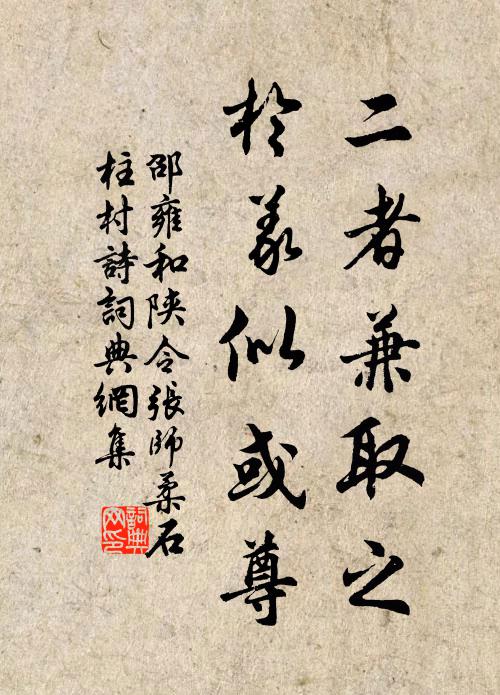 二者兼取之
於义似或尊
邵雍和陕令張師柔石
柱村詩詞典網集
詞典网印